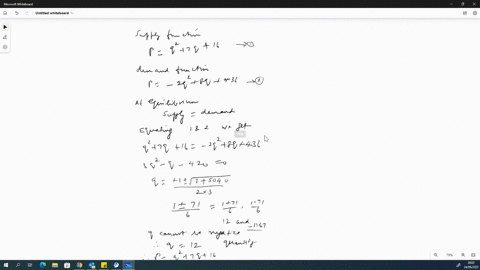 Microsoft Whiteboard
Untitled whiteboard
Supply function
P = q² + 7q + 16 → ①
demand function
P = -2q² + 8q + 436 → ②
At Equilibrium
Supply = demand
Equating 1 & 2 we get
q² + 7q + 16 = -2q² + 8q + 436
3q² - q - 420 = 0
q = +1 ± √1 + 5040
2 x 3
1 ± 71 / 6 = 1+71 / 6, 1-71 / 6
12 and -11.67
q cannot be negative quantity
∴ q = 12
P = q² + 7q + 16
75%